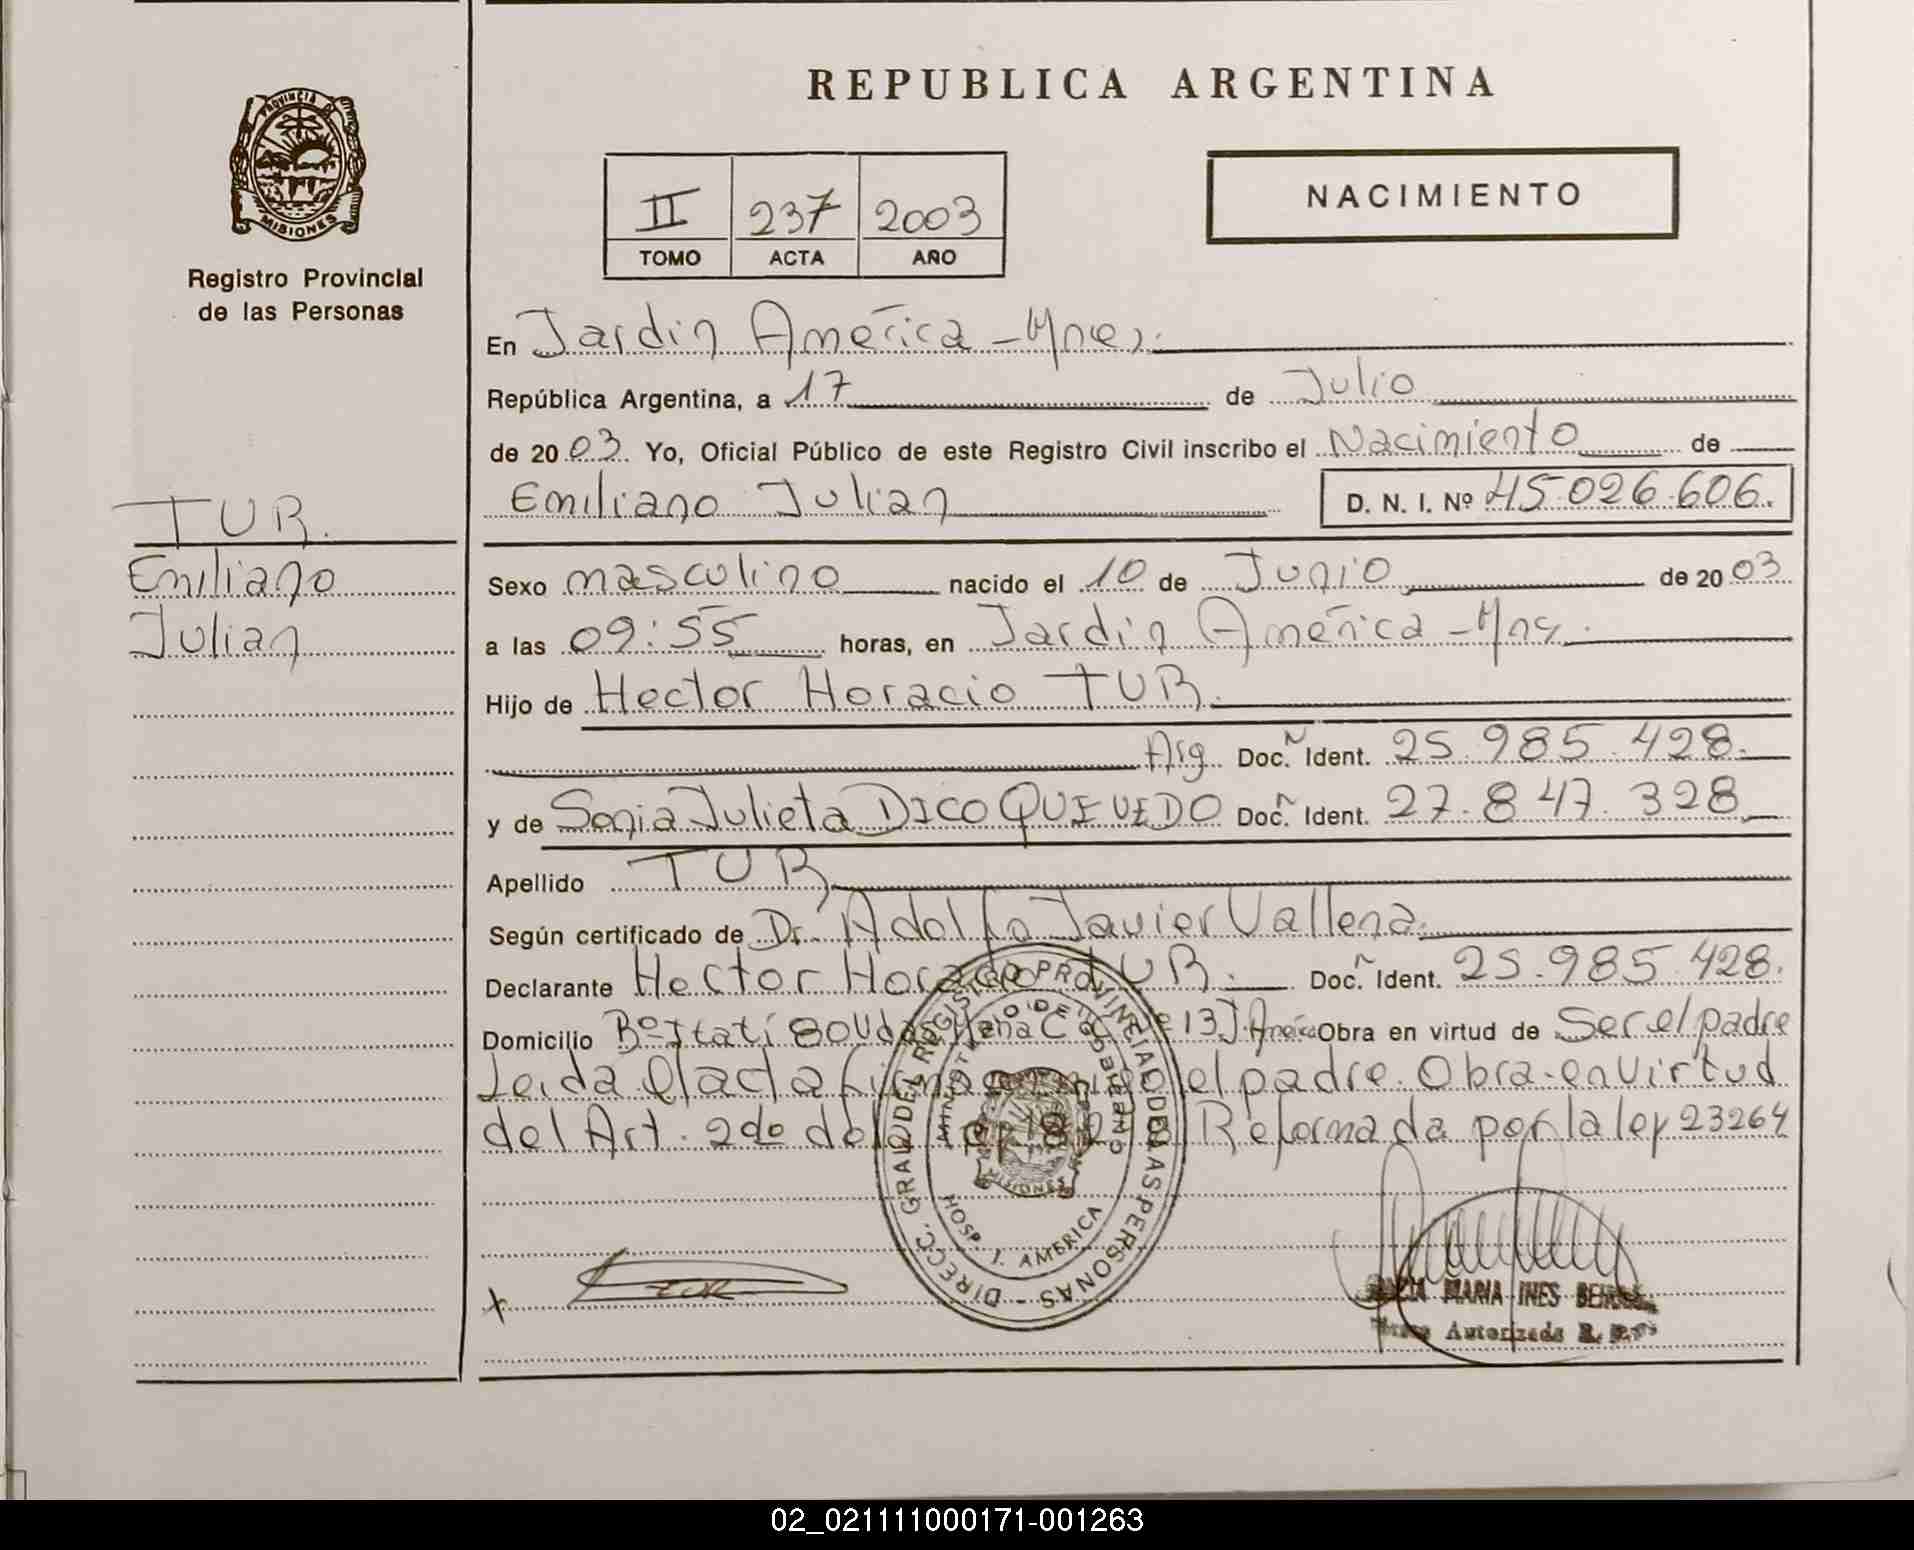 REPUBLICA ARGENTINA
PROVINCIA DE
MISIONES
Registro Provincial
de las Personas
II 237 2003
TOMO ACTA AÑO
NACIMIENTO
En Jardin América - Mnes.
República Argentina, a 17 de Julio
de 2003. Yo, Oficial Público de este Registro Civil inscribo el Nacimiento de
Emiliano Julian D. N. I. Nº 45.026.606.
TUR.
Emiliano
Julian
Sexo masculino nacido el 10 de Junio de 2003
a las 09:55 horas, en Jardin América - Mns.
Hijo de Hector Horacio TUR.
Arg. Doc. Ident. 25.985.428.
y de Sonia Julieta DICO QUEVEDO Doc. Ident. 27.847.328
Apellido TUR
Según certificado de Dr. Adolfo Javier Vallena.
Declarante Hector Horacio TUR. Doc. Ident. 25.985.428.
Domicilio Bº Itatí 80 Vdas 13 J. América Obra en virtud de Ser el padre
Leida el acta firma el padre. Obra en virtud
del Art. 2do de la Reformada por la ley 23264
DIRECC. GRAL. DEL REGISTRO PROVINCIAL DE LAS PERSONAS
MINISTERIO DE GOBIERNO
MISIONES
HOSP. J. AMERICA
X TUR
MARIA INES
Autorizada
02_021111000171-001263